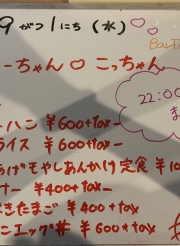 9がつ1にち(水)
BarTi
ーちゃん♡こっちゃん
22:00
ま
ハン ¥600+tax
ライス ¥600+tax
あげモやしあんかけ定食 ¥10
ナー ¥400+tax
きたまご ¥400+tax
ニエッグ丼 ¥600+tax